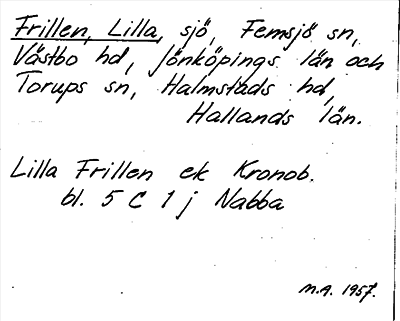 Frillen, Lilla, sjö, Femsjö sn,
Västbo hd, Jönköpings län och
Torups sn, Halmstads hd,
Hallands län.
Lilla Frillen ek Kronob.
bl. 5 C 1 j Nabba
M.A. 1957.